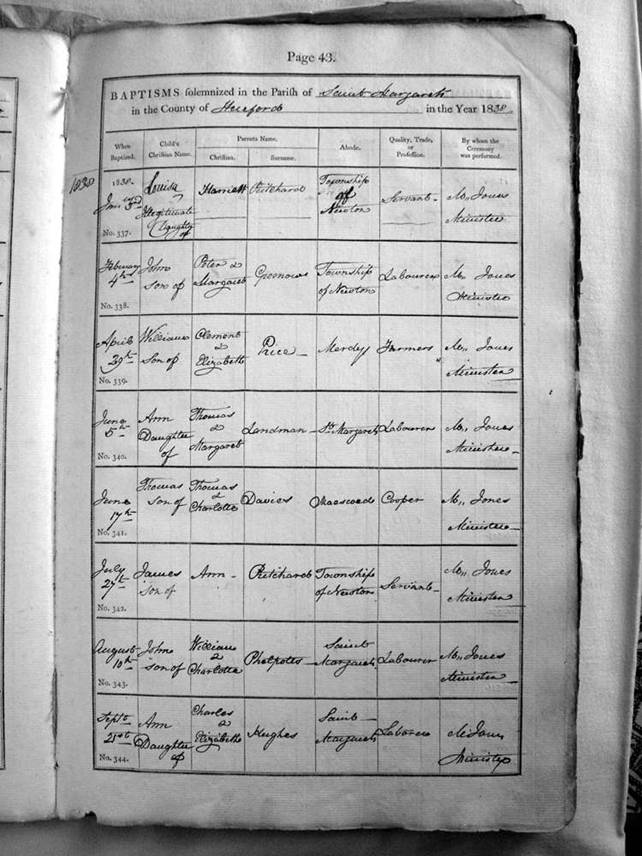 Page 43.
BAPTISMS solemnized in the Parish of Saint Margarets
in the County of Hereford in the Year 1838
When Baptized. Child's Christian Name. Parents Name. Christian. Surname. Abode. Quality, Trade, or Profession. By whom the Ceremony was performed.
1838
1838.
Louisa Harriett Pritchard Township
of
Newton
Servant M. Jones
Minister
3rd
Illegitimate
Daughter
of
No. 337.
February
4th
John
son of
Peter &
Margaret
Township
of Newton
Labourer M. Jones
Minister
No. 338.
April
29th
William
son of
Clement
&
Elizabeth
Price Farmers M. Jones
Minister
No. 339.
June
5th
Ann
Daughter
of
Thomas
&
Margaret
Landman St. Margarets Labourer M. Jones
Minister
No. 340.
June
17th
Thomas
son of
Thomas
&
Charlotte
Davies Cooper M. Jones
Minister
No. 341.
July
27th
James
son of
Ann Pritchard Township
of Newton
Servant M. Jones
Minister
No. 342.
August
10th
John
son of
William
&
Charlotte
Phelpotts Saint
Margarets
Labourer M. Jones
Minister
No. 343.
Septr
21st
Ann
Daughter
of
Charles
&
Elizabeth
Hughes Saint
Margarets
Laborer M. Jones
Minister
No. 344.